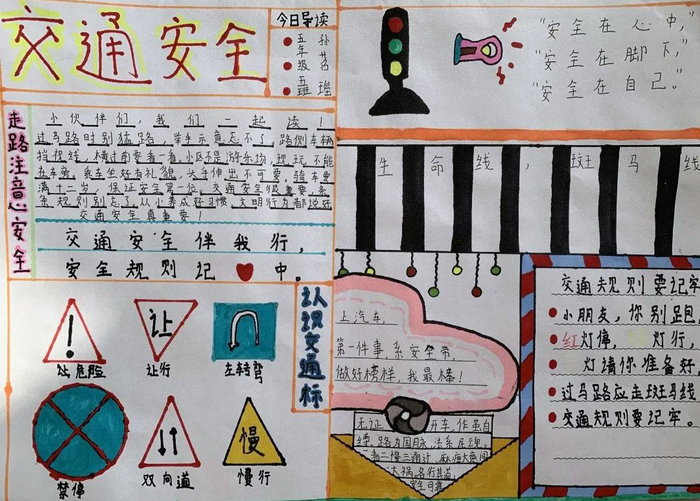 交通安全
今日导读
五年级五班
走路注意心安全
小伙伴们,我们一起读!
过马路时别猛跑,举手示意忘不了,路侧车辆
挡视线,横过前要看一看,小区不是游乐场,现玩不能
满十二岁,保证安全第一位,交通安全很重要,条
条规则别忘了,从小养成好习惯,文明行为都说好
交通安全真重要!
交通安全伴我行,
安全规则记 中.
认识交通标
注意危险
让
让行
左转弯
禁停
双向道
慢
慢行
"安全在心中,"
"安全在脚下,"
"安全在自己。"
生命线,斑马线
上汽车,
第一件事,系安全带,
做好榜样 我最棒!
交通规则要记牢
小朋友,你别跑,
红灯停, 灯行,
灯请你准备好,
过马路应走斑马线
交通规则要记牢。